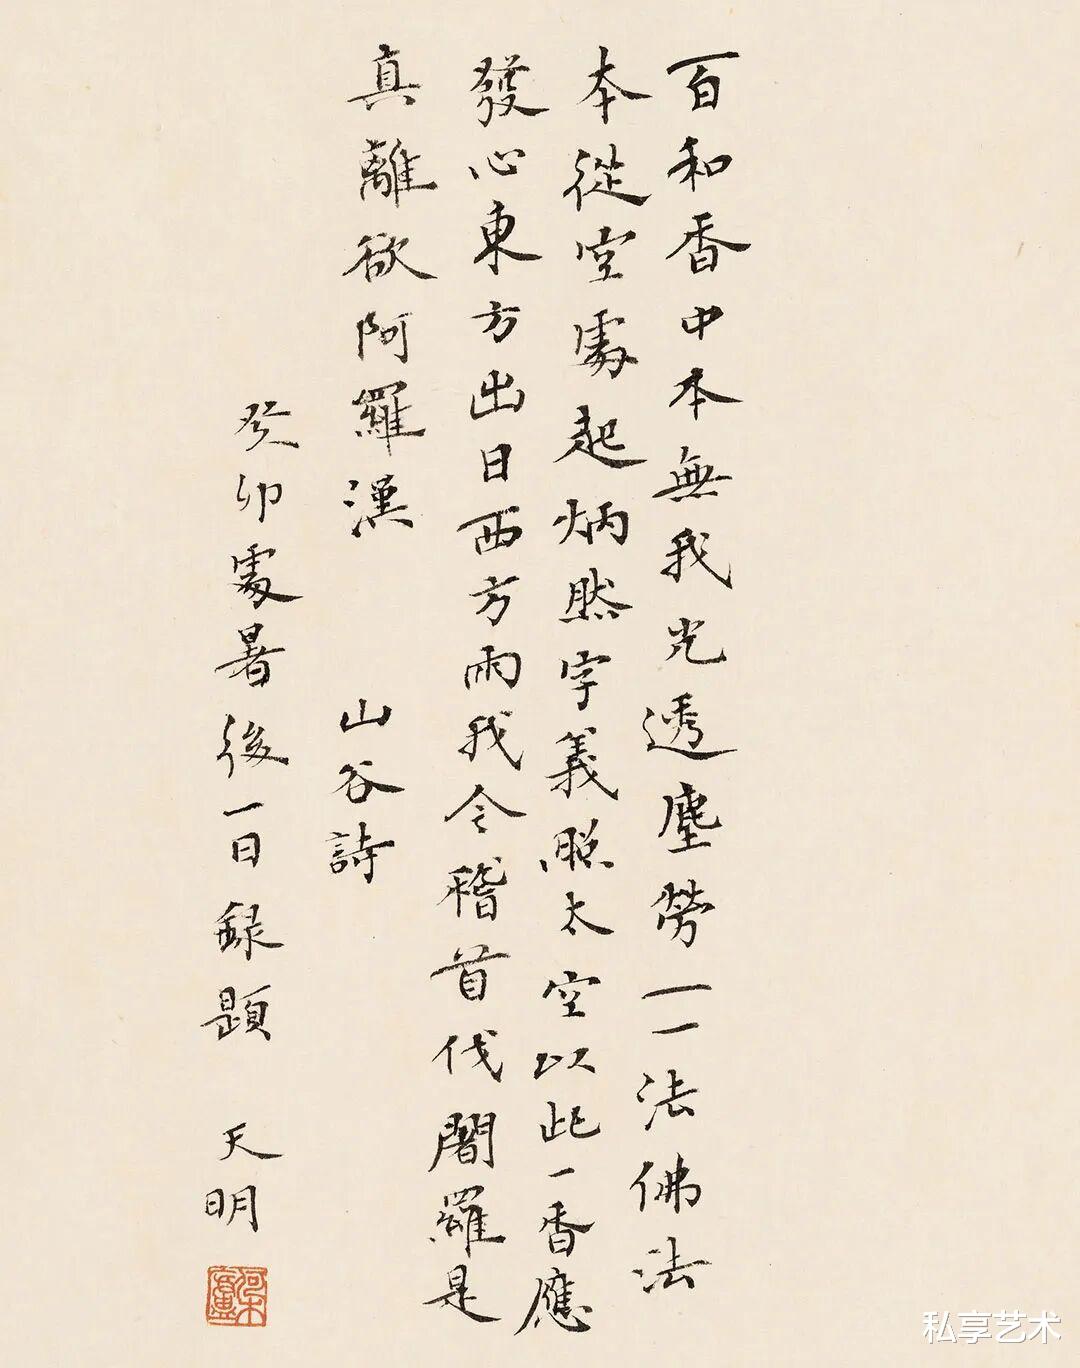 百和香中本無我光透塵勞一一法佛法
本從空處起炳然字義照太空以此一香應
發心東方出日西方雨我今稽首伐闍羅是
真離欲阿羅漢 山谷詩
癸卯處暑後一日録題 天明
私享艺术